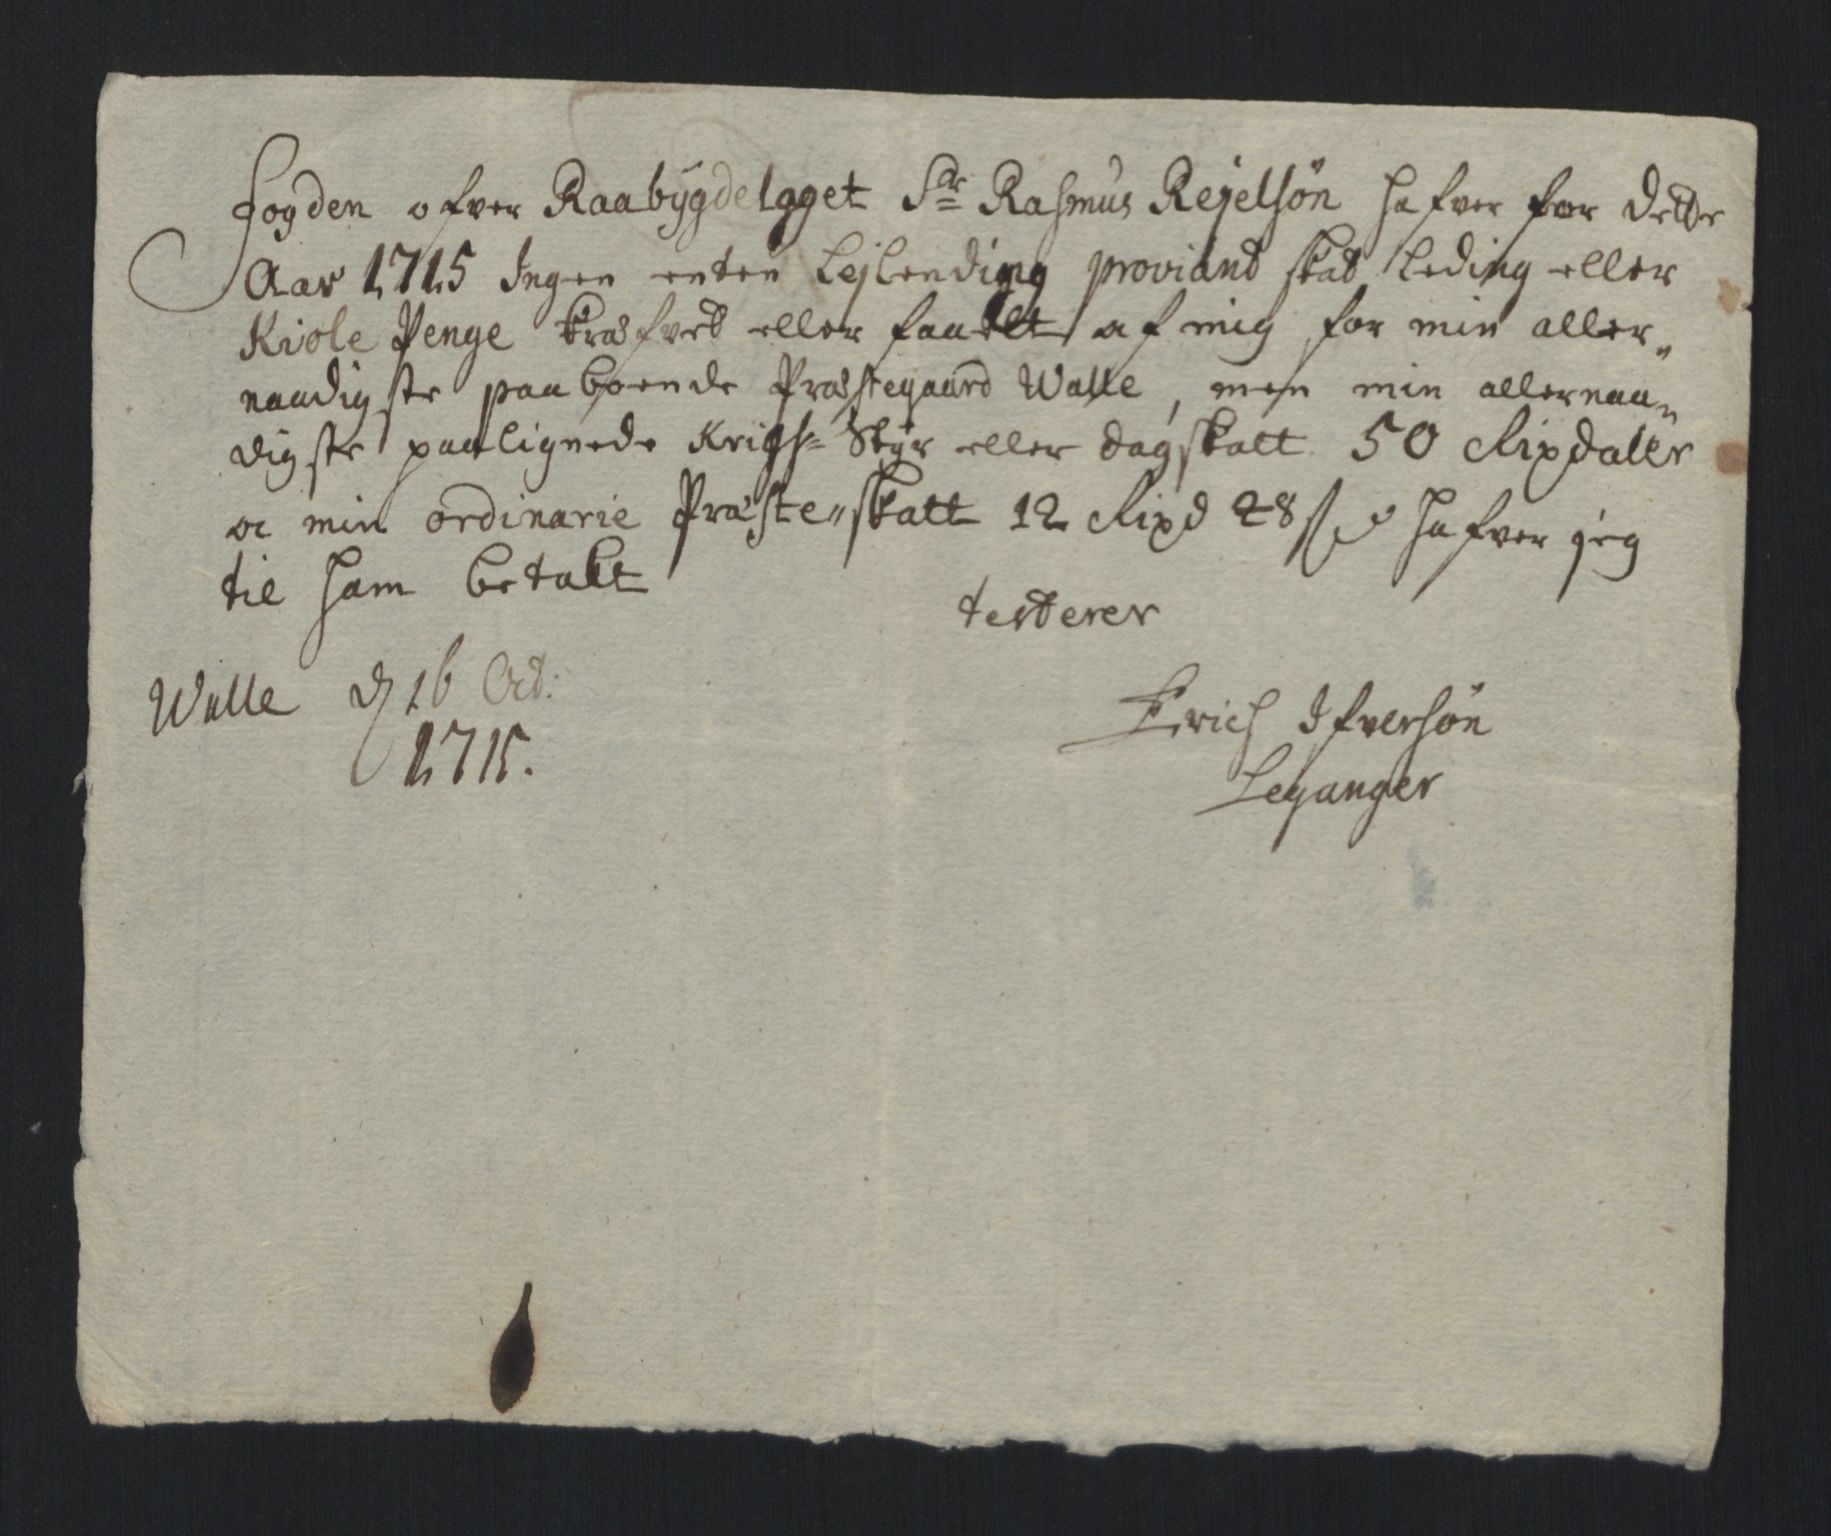 Fogden ofver Raabÿgdelaget Sr Rasmus Rejelsön hafver for dette
Aar 1715 Ingen enten Lejlending proviant skat, Leding eller
Kiole Penge Kræfvet eller faaelt af mig for min aller„
naadigste paaboende Præstegaard Walle, men min allernaa„
digste paalignede Krigs= Styr eller dagskatt 50 Rixdaler
oc min ordinarie Præste„skatt 12 Rixd 28 ß hafver jeg
til ham betalt
testerer
Walle d 16 Oct:
1715.
Erich Ifversön
Leganger